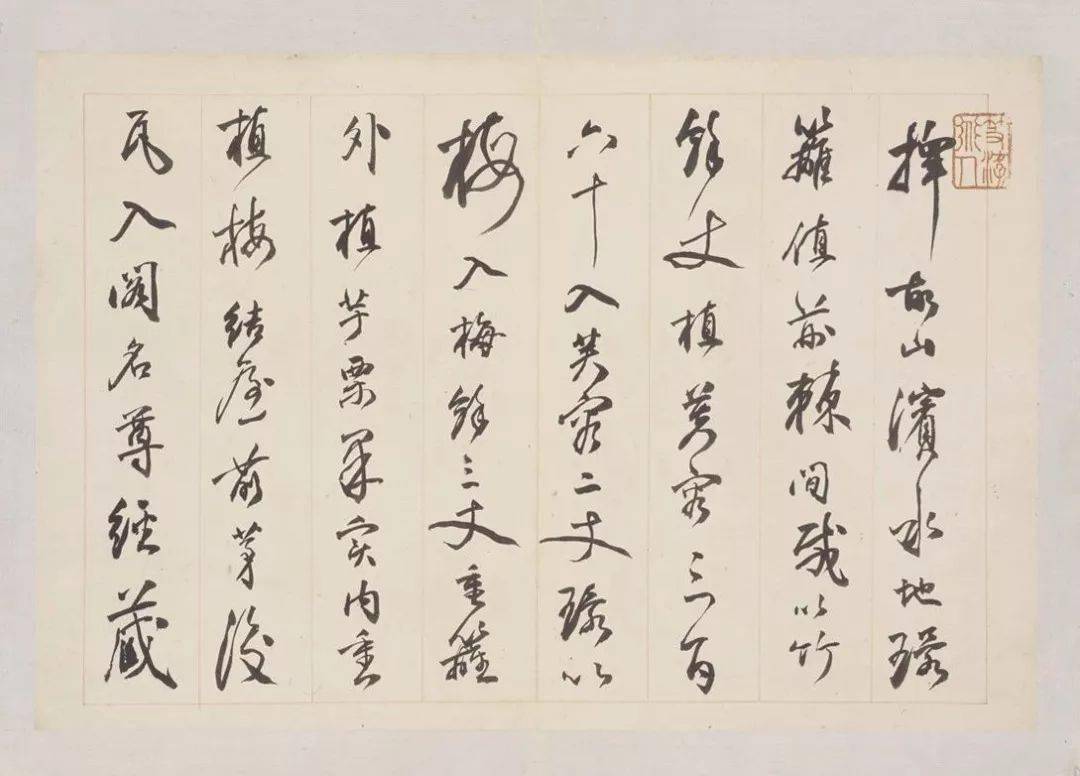 擇故山濱水地環
籬植荊棘間栽以竹
餘丈植芙容三百
六十入芙容二丈環以
梅入梅餘三丈重籬
外植芋栗果實內重
植梅結屋前茅後
瓦入閣名尊經藏